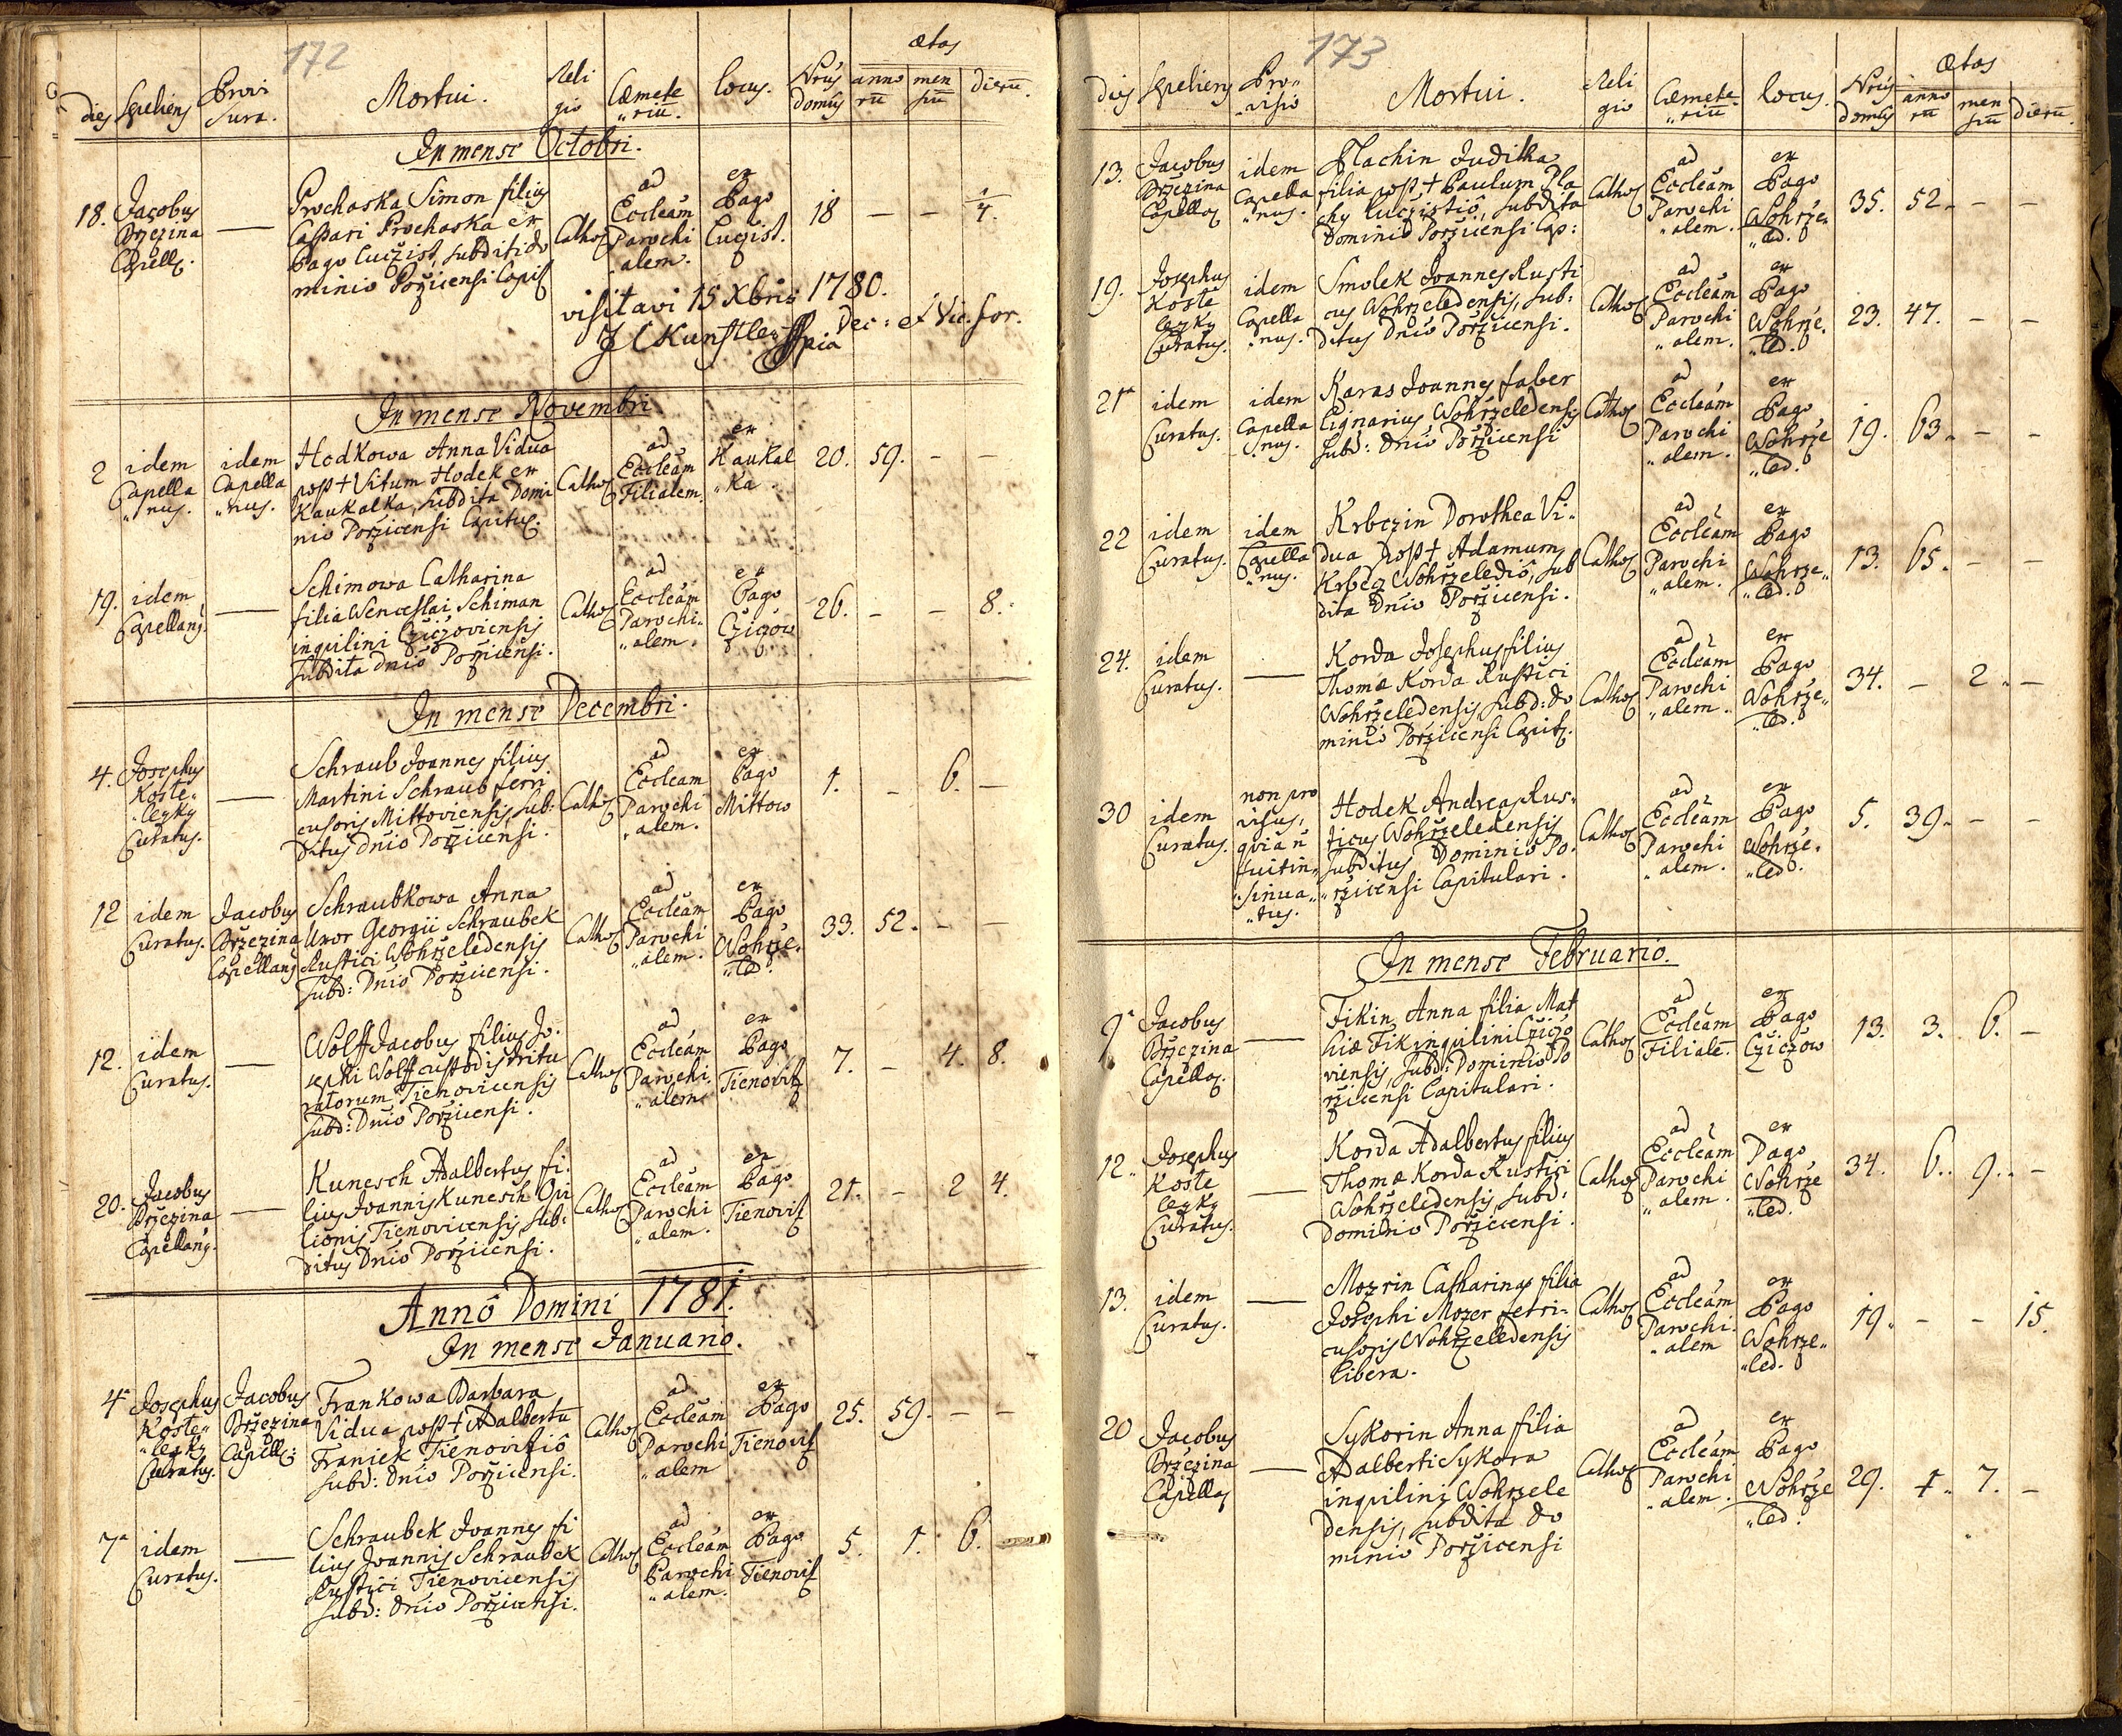 172
dies Sepeliens Provisura. Mortui. Religio Cæmete„riu̅. locus. Nrus domus ætas annoru̅ mensiu̅ dieru̅.
In mense Octobri.
18. Jacobus Brzezina Capell. —
Prochaska Simon filius
Caspari Prochaska ex
Pago Luczist, subditi do
minio Porzicensi Capit
Cathol ad Eccleam Parochi„alem. ex Pago Lugist. 18 — — 1/4.
visitavi 15 Xbris 1780.
J C Kunstler Dec: et Vic. for.
In mense Novembri
2 idem Capella„nus. idem Capella„nus.
Hodkowa Anna Vidua
post + Vitum Hodek ex
Kaukalka, subdita Domi
nio Porzicensi Capitul.
Cathol ad Eccleam Filialem. ex Kaukal„ka. 20. 59. — —
19. idem Capellanus. —
Schimowa Catharina
filia Wenceslai Schiman
inquilini Czizoviensis
subdita Dnio Porzicensi.
Cathol ad Eccleam Parochi„alem. ex Pago Czizow 26. — — 8.
In mense Decembri.
4. Josephus Koste„lezky Curatus. —
Schraub Joannes filius
Martini Schraub ferri
cusoris Mittoviensis, sub:
ditus Dnio Porzicensi.
Cathol ad Eccleam Parochi„alem. ex Pago Mittow 1. — 6. —
12 idem Curatus. Jacobus Brzezina Capellanus
Schraubkowa Anna
Uxor Georgii Schraubek
Rustici Wohrzeledensis
subd: Dnio Porzicensi.
Cathol ad Eccleam Parochi„alem. ex Pago Wohrze„led. 33. 52. — —
12. idem Curatus. —
Wolff Jacobus filius Jo.
sephi Wolff custodis tritu
ratorum Tienovicensis
subd: Dnio Porzicensi.
Cathol ad Eccleam Parochi„alem. ex Pago Tienovitz 7. — 4. 8.
20. Jacobus Brzezina Capellanus. —
Kunesch Adalbertus fi.
lius Joannis Kunesch Opi
lionis Tienovicensis, sub:
ditus Dnio Porzicensi.
Cathol ad Eccleam Parochi„alem. ex Pago Tienovitz 21. — 2 4.
Annô Domini 1781.
In mense Januario.
4 Josephus Koste„lezky Curatus. Jacobus Brzezina Capell:
Frankowa Barbara
Vidua post + Adalbertu̅
Franiek Tienovitio
subd: Dnio Porzicensi.
Cathol ad Eccleam Parochi„alem ex Pago Tienovitz 25. 59. — —
7 idem Curatus. —
Schraubek Joannes fi
lius Joannis Schraubek
Rustici Tienovicensis
subd: Dnio Porzicensi.
Cathol ad Eccleam Parochi„alem. ex Pago Tienovitz 5. 1. 6. —
173
dies Sepeliens Pro„visio Mortui. Religio Cæmete„riu̅ locus. Nrus domus Ætas annoru̅ mensiu̅ dieru̅.
13. Jacobus Brzezina Capella idem Capella„nus.
Plachin Juditha
filia post + Paulum Pla
chy Luczistio, subdita
Dominio Porzicensi Cap:
Cathol ad Eccleam Parochi„alem. ex Pago Wohrze„led. 35. 52. — —
19. Josephus Kostelezky Curatus. idem Capella„nus.
Smolek Joannes Rusti
cus Wohrzeledensis, sub:
ditus Dnio Porzicensi.
Cathol ad Eccleam Parochi„alem. ex Pago Wohrze„led. 23. 47. — —
21 idem Curatus. idem Capella„nus.
Karas Joannes faber
Lignarius Wohrzeledensis
subd: Dnio Porzicensi
Cathol ad Eccleam Parochi„alem. ex Pago Wohrze„led. 19. 63. — —
22 idem Curatus. idem Capella„nus.
Krbczin Dorothea Vi„
dua post + Adamum
Krbecz Wohrzeledio, sub
dita Dnio Porzicensi.
Cathol ad Eccleam Parochi„alem. ex Pago Wohrze„led. 13. 65. — —
24. idem Curatus. —
Korda Josephus filius
Thomæ Korda Rustici
Wohrzeledensis, subd: do
minio Porzicensi Capit.
Cathol ad Eccleam Parochi„alem. ex Pago Wohrze„led. 34. — 2. —
30 idem Curatus. non pro visus, quia n̄ fuit in„sinua„tus.
Hodek Andreas Rus„
ticus Wohrzeledensis
subditus Dominio Po„
rzicensi Capitulari.
Cathol ad Eccleam Parochi„alem. ex Pago Wohrze„led. 5. 39. — —
In mense Februario.
9 Jacobus Brzezina Capella. —
Fikin Anna filia Mat
hiæ Fik inquilini Czizo
viensis, subd: Dominio Po
rzicensi Capitulari.
Cathol ad Eccleam Filiale̅. ex Pago Czizow 13. 3. 6. —
12. Josephus Kostelezky Curatus. —
Korda Adalbertus filius
Thomæ Korda Rustici
Wohrzeledensis, subd:
Dominio Porzicensi.
Cathol ad Eccleam Parochi„alem. ex Pago Wohrze„led. 34. 6. 9. —
13. idem Curatus. —
Mozrin Catharina filia
Josephi Mozer ferri„
cusoris Wohrzeledensis
libera.
Cathol ad Eccleam Parochi„alem ex Pago Wohrze„led. 19. — — 15.
20 Jacobus Brzezina Capella —
Sykorin Anna filia
Adalberti Sykora
inquilini Wohrzele
densis, subdita do
minio Porzicensi
Cathol ad Eccleam Parochi„alem. ex Pago Wohrze„led. 29. 1. 7. —